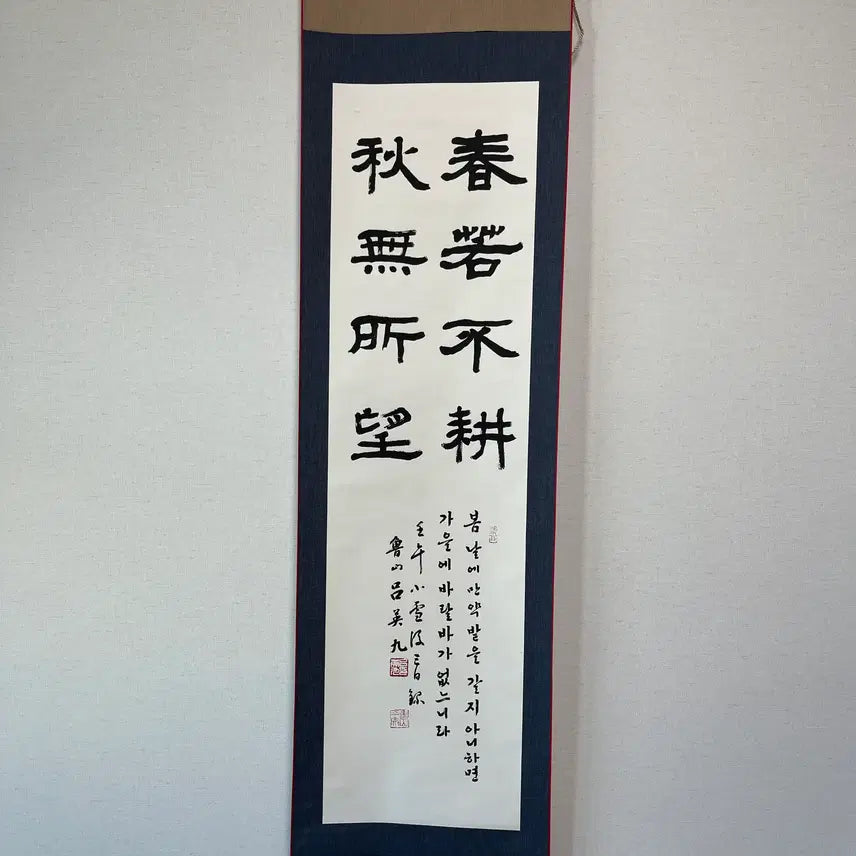 春若不耕
秋無所望
봄날에만약밭을갈지아니하면
가을에바랄바가없느니라
壬午小雪後三日錄
魯山呂英九